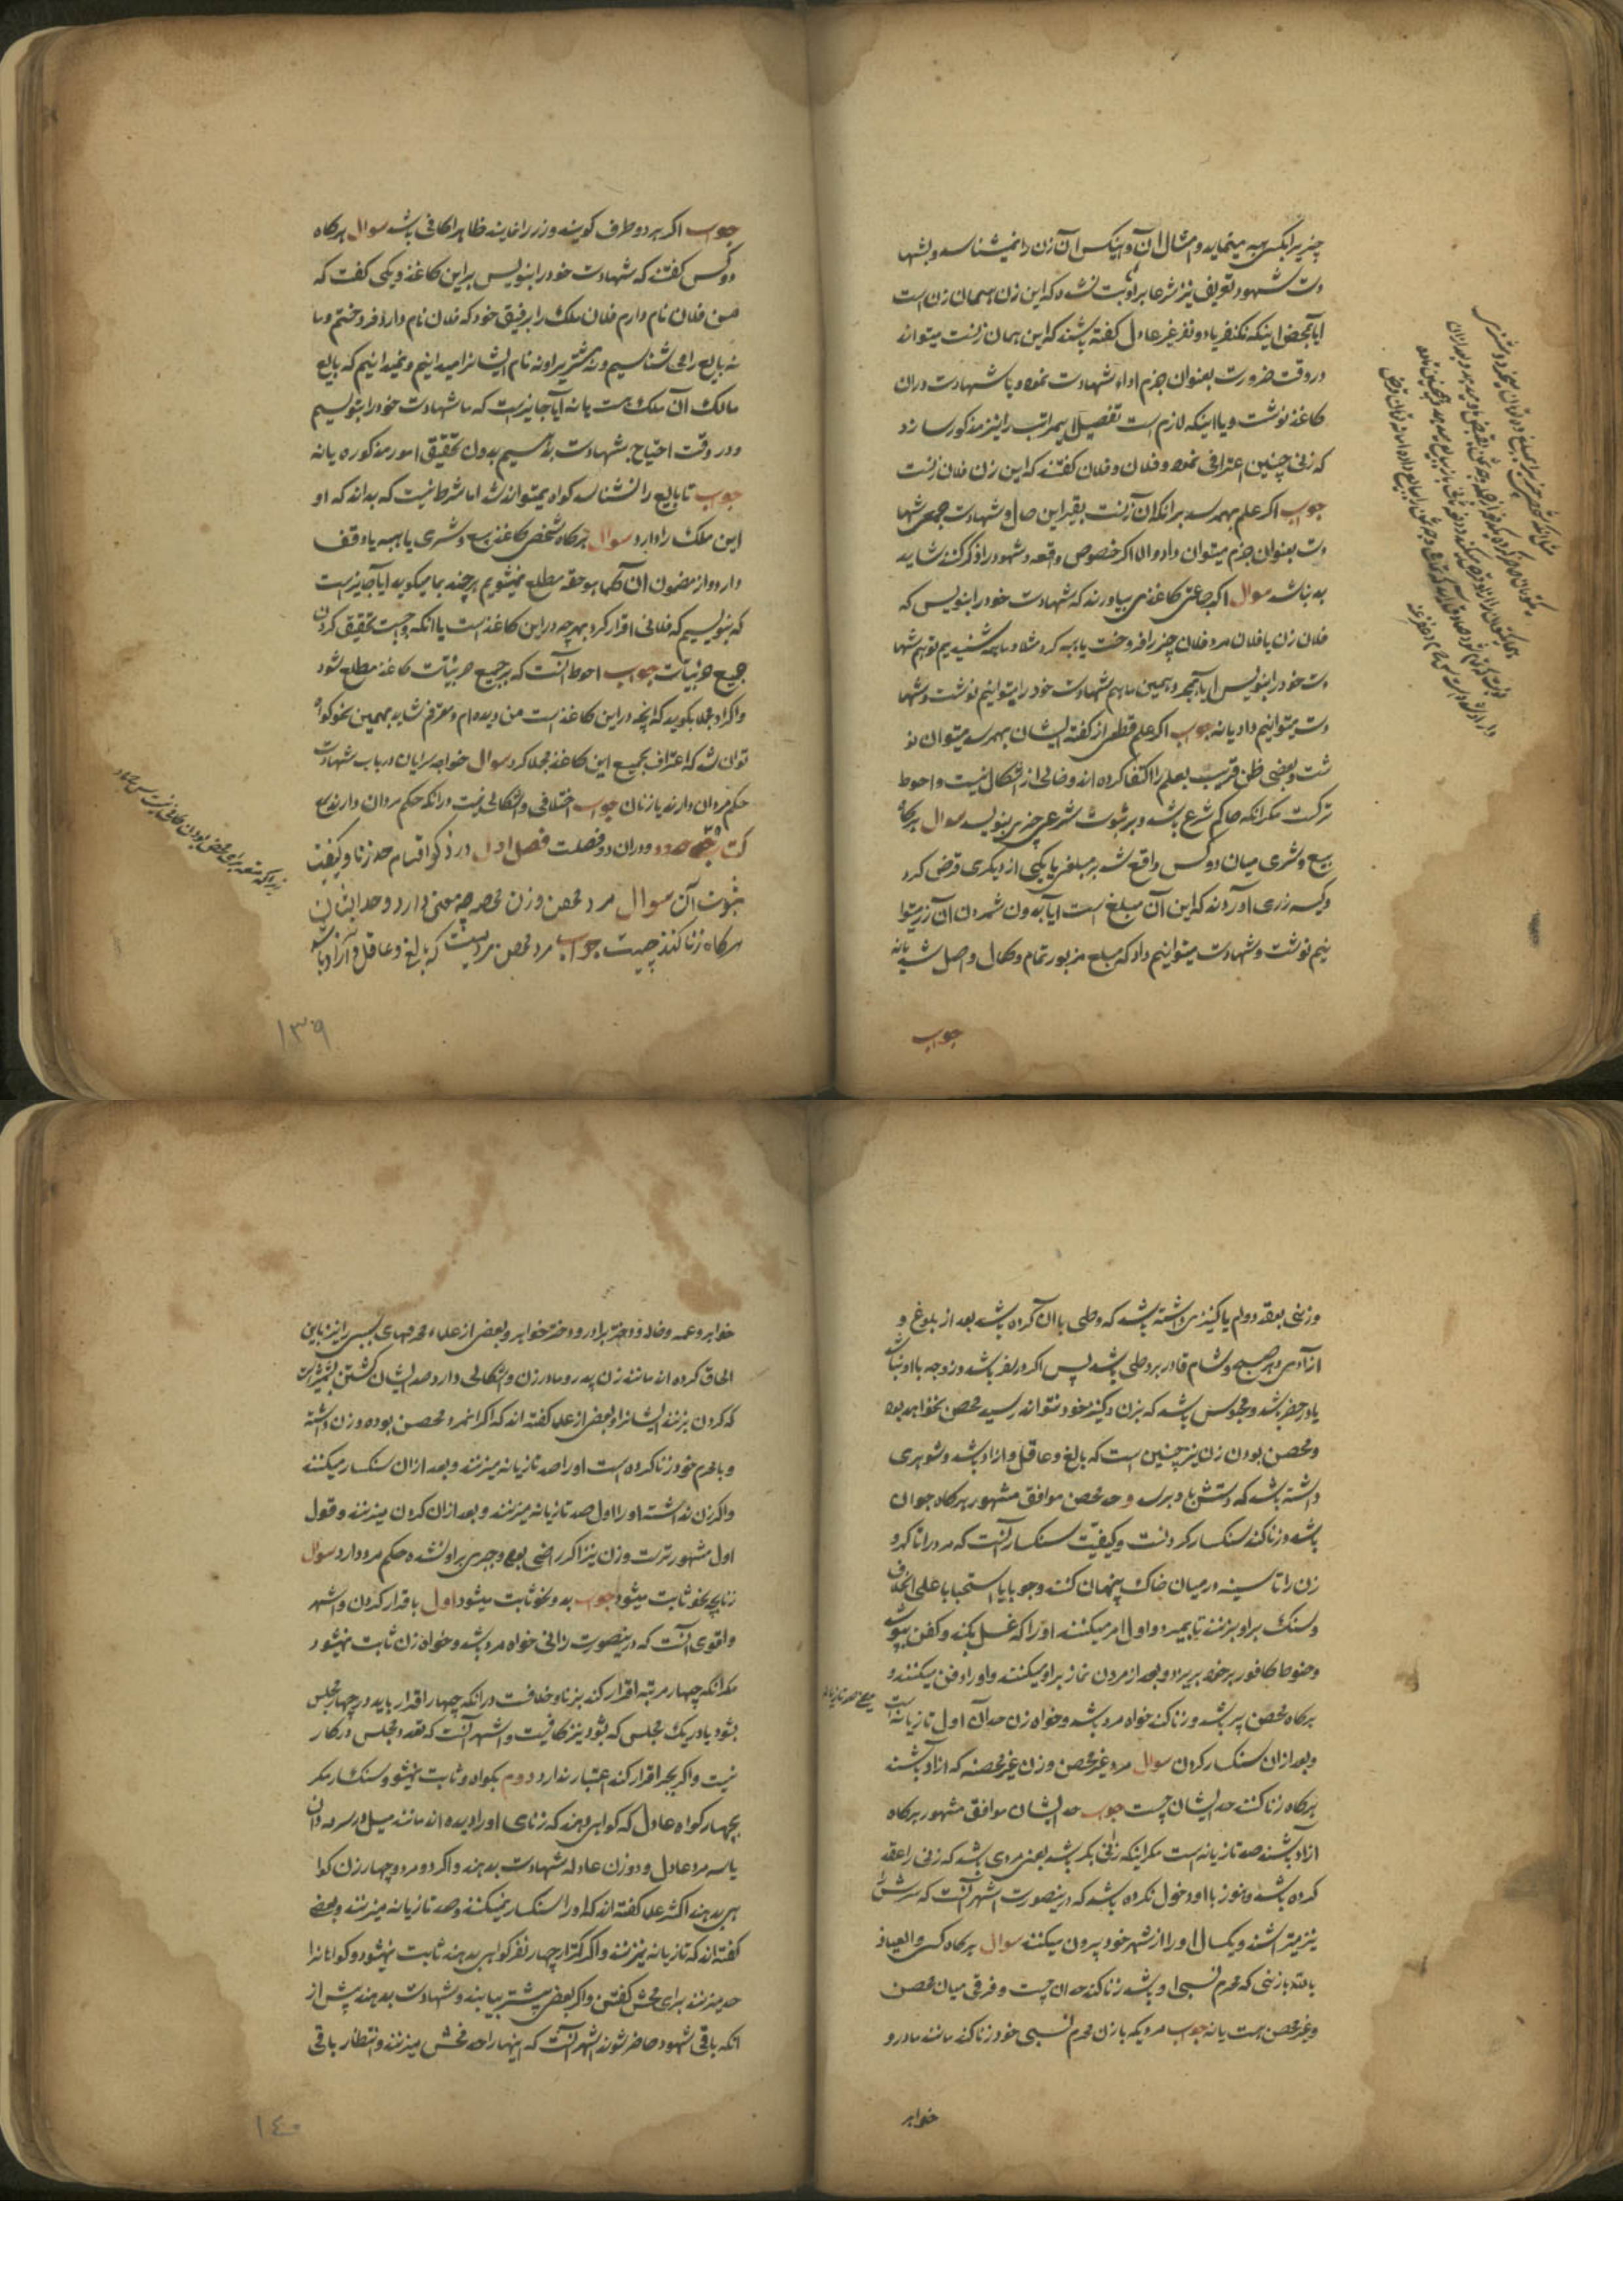 چیزیرا بکسی هبه مینماید و امثال آن و اینکس آن زن را نمیشناسد و بشها
دت شهود تعریف نیز شرعا بر او ثابت نشده که این زن همان زن است
ایا بمحض اینکه یکنفر یا دو نفر غیر عادل گفته باشند که این همان زنست میتواند
در وقت ضرورت بعنوان جزم اداء شهادت نمود و یا شهادت در ان
کاغذ نوشت و یا اینکه لازم است تفصیل این مراتب را نیز مذکور سازد
که زنی چنین اعترافی نمود و فلان و فلان گفتند که این زن فلان زنست
جواب اکر علم بهمرسد بر انکه آن زنست بقراین حال و شهادت جمعی شها
دت بعنوان جزم میتوان داد و الا اکر خصوص واقعه و شهود را ذکر کنند شاید
بد نباشد سوال اکر جماعتی کاغذی بیاورند که شهادت خود را بنویس که
فلان زن یا فلان مرد فلان چیز را فروخت یا هبه کرد مثلا و ما همه شنیدیم تو هم شها
دت خود را بنویس ایا بمجرد همین ما هم شهادت خود را میتوانیم نوشت و شها
دت میتوانیم داد یا نه جواب اکر علم قطعی از گفته ایشان بهمرسد میتوان نو
شت و بعضی ظن قریب بعلم را اکتفا کرده اند و خالی از اشکال نیست و احوط
ترکست مکر انکه حاکم شرع باشد و بر ثبوت شرعی چیزی بنویسد سوال هرکاه
بیع و شری میان دو کس واقع شد بر مبلغی یا یکی از دیکری قرض کرد
و کیسه زری آوردند که این آن مبلغ است ایا بدون شمردن آن زر میتوا
نیم نوشت و شهادت میتوانیم داد که مبلغ مزبور تمام و کمال واصل شد یا نه
جواب
جواب اکر هر دو طرف کویند و زر را نمایند ظاهرا کافی باشد سوال هرکاه
دو کس گفتند که شهادت خود را بنویس بر این کاغذ و یکی گفت که
من فلان نام دارم فلان ملک را برفیق خود که فلان نام دارد فروختم و ما
نه بایع را می شناسیم و نه مشتریرا و نه نام ایشانرا میدانیم و نمیدانیم که بایع
مالک آن ملک هست یا نه ایا جایز است که ما شهادت خود را بنویسیم
و در وقت احتیاج شهادت بدهیم بدون تحقیق امور مذکوره یا نه
جواب تا بایع را نشناسد کواه نمیتواند شد اما شرط نیست که بداند که او
این ملک را دارد سوال هرکاه شخصی کاغذ بیع و شری یا هبه یا وقف
دارد و از مضمون ان کما هو حقه مطلع نمیشویم هر چند بما میکوید ایا جایز است
که بنویسیم که فلانی اقرار کرد بهرچه در این کاغذ است یا انکه واجبست تحقیق کردن
جمیع جزئیات جواب احوط آنست که بر جمیع جزئیات کاغذ مطلع شود
و اکر او مجملا بکوید که انچه در این کاغذ است من دیده ام و معترفم شاید بهمین نحو کواه
توان شد که اعتراف بجمیع این کاغذ مجملا کرد سوال خواجه سرایان در باب شهادت
حکم مردان دارند یا زنان جواب اختلافی و اشکالی نیست در انکه حکم مردان دارند
کتاب حدود و در ان دو فصلست فصل اول در ذکر اقسام حد زنا و کیفیت
ثبوت آن سوال مرد محصن و زن محصنه چه معنی دارد و حد ایشان
هرکاه زنا کنند چیست جواب مرد محصن مردیست که بالغ و عاقل و آزاد باشد
۱۳۹
و زنی بعقد دوام یا کنیزی داشته باشد که وطی با ان کرده باشد بعد از بلوغ و
ازادی و هر صبح و شام قادر بر وطی باشد پس اکر در سفر باشد و زوجه با او نباشد
یا در حضر باشد و محبوس باشد که بزن و کنیز خود نتواند رسید محصن نخواهد بود
و محصن بودن زن نیز چنین است که بالغ و عاقل و ازاد باشد و شوهری
داشته باشد که دستش باو برسد و حد محصن موافق مشهور هرکاه جوان
باشد و زنا کند سنکسار کردنست و کیفیت سنکسار آنست که مرد را تا کمر و
زن را تا سینه در میان خاک پنهان کنند وجوبا یا استحبابا علی الخلاف
و سنک بر او بزنند تا بمیرد و اول امر میکنند او را که غسل بکند و کفن بپوشد
و حنوط کافور بر خود بریزد و بعد از مردن نماز بر او میکنند و او را دفن میکنند و
هرکاه محصن پیر باشد و زنا کند خواه مرد باشد و خواه زن حد آن اول تازیانه است
و بعد از ان سنکسار کردن سوال مرد غیر محصن و زن غیر محصنه که ازاد باشند
هرکاه زنا کنند حد ایشان چیست جواب حد ایشان موافق مشهور هرکاه
ازاد باشند صد تازیانه است مکر اینکه زانی بکر باشد یعنی مردی باشد که زنی را عقد
کرده باشد و هنوز با او دخول نکرده باشد که در ینصورت اشهر آنست که سرش را
نیز میتراشند و یکسال او را از شهر خود بیرون میکنند سوال هرکاه کسی و العیاذ
بالله با زنی که محرم نسبی او باشد زنا کند حد ان چیست و فرقی میان محصن
و غیر محصن هست یا نه جواب مردیکه با زن محرم نسبی خود زنا کند مانند مادر و
خواهر
خواهر و عمه و خاله و دختر برادر و دختر خواهر و بعضی از علماء محرمهای سببی را نیز باین
الحاق کرده اند مانند زن پدر و مادر زن و اشکالی دارد حد ایشان کشتن بشمشیر است
که کردن بزنند ایشانرا و بعضی از علما گفته اند که اکر انمرد محصن بوده و زن داشته
و با محرم خود زنا کرده است او را صد تازیانه میزنند و بعد از ان سنکسار میکنند
و اکر زن نداشته او را اول صد تازیانه میزنند و بعد از ان کردن میزنند و قول
اول مشهورتر است و زن نیز اکر راضی بوده و جبری بر او نشده حکم مرد دارد سوال
زنا بچه نحو ثابت میشود جواب بدو نحو ثابت میشود اول باقرار کردن و اشهر
و اقوی آنست که در ینصورت زانی خواه مرد باشد و خواه زن ثابت نمیشود
مکر انکه چهار مرتبه اقرار کند بزنا و خلافست در انکه چهار اقرار باید در چهار مجلس
بشود یا در یک مجلس که بشود نیز کافیست و اشهر آنست که تعدد مجلس در کار
نیست و اکر بجبر اقرار کند اعتبار ندارد دوم بکواه و ثابت نمیشود و سنکسار مکر
بچهار کواه عادل که کواهی دهند که زنای او را دیده اند مانند میل در سرمه دان
یا سه مرد عادل و دو زن عادله شهادت بدهند و اکر دو مرد و چهار زن کوا
هی بدهند اکثر علما گفته اند که او را سنکسار نمیکنند و صد تازیانه میزنند و بعضی
گفته اند که تازیانه نیز نمیزنند و اکر کمتر از چهار نفر کواهی بدهند ثابت نمیشود و کواهانرا
حد میزنند برای فحش گفتن و اکر بعضی پیشتر بیایند و شهادت بدهند پیش از
انکه باقی شهود حاضر شوند اشهر آنست که اینها را حد فحش میزنند و انتظار باقی
۱۴۰